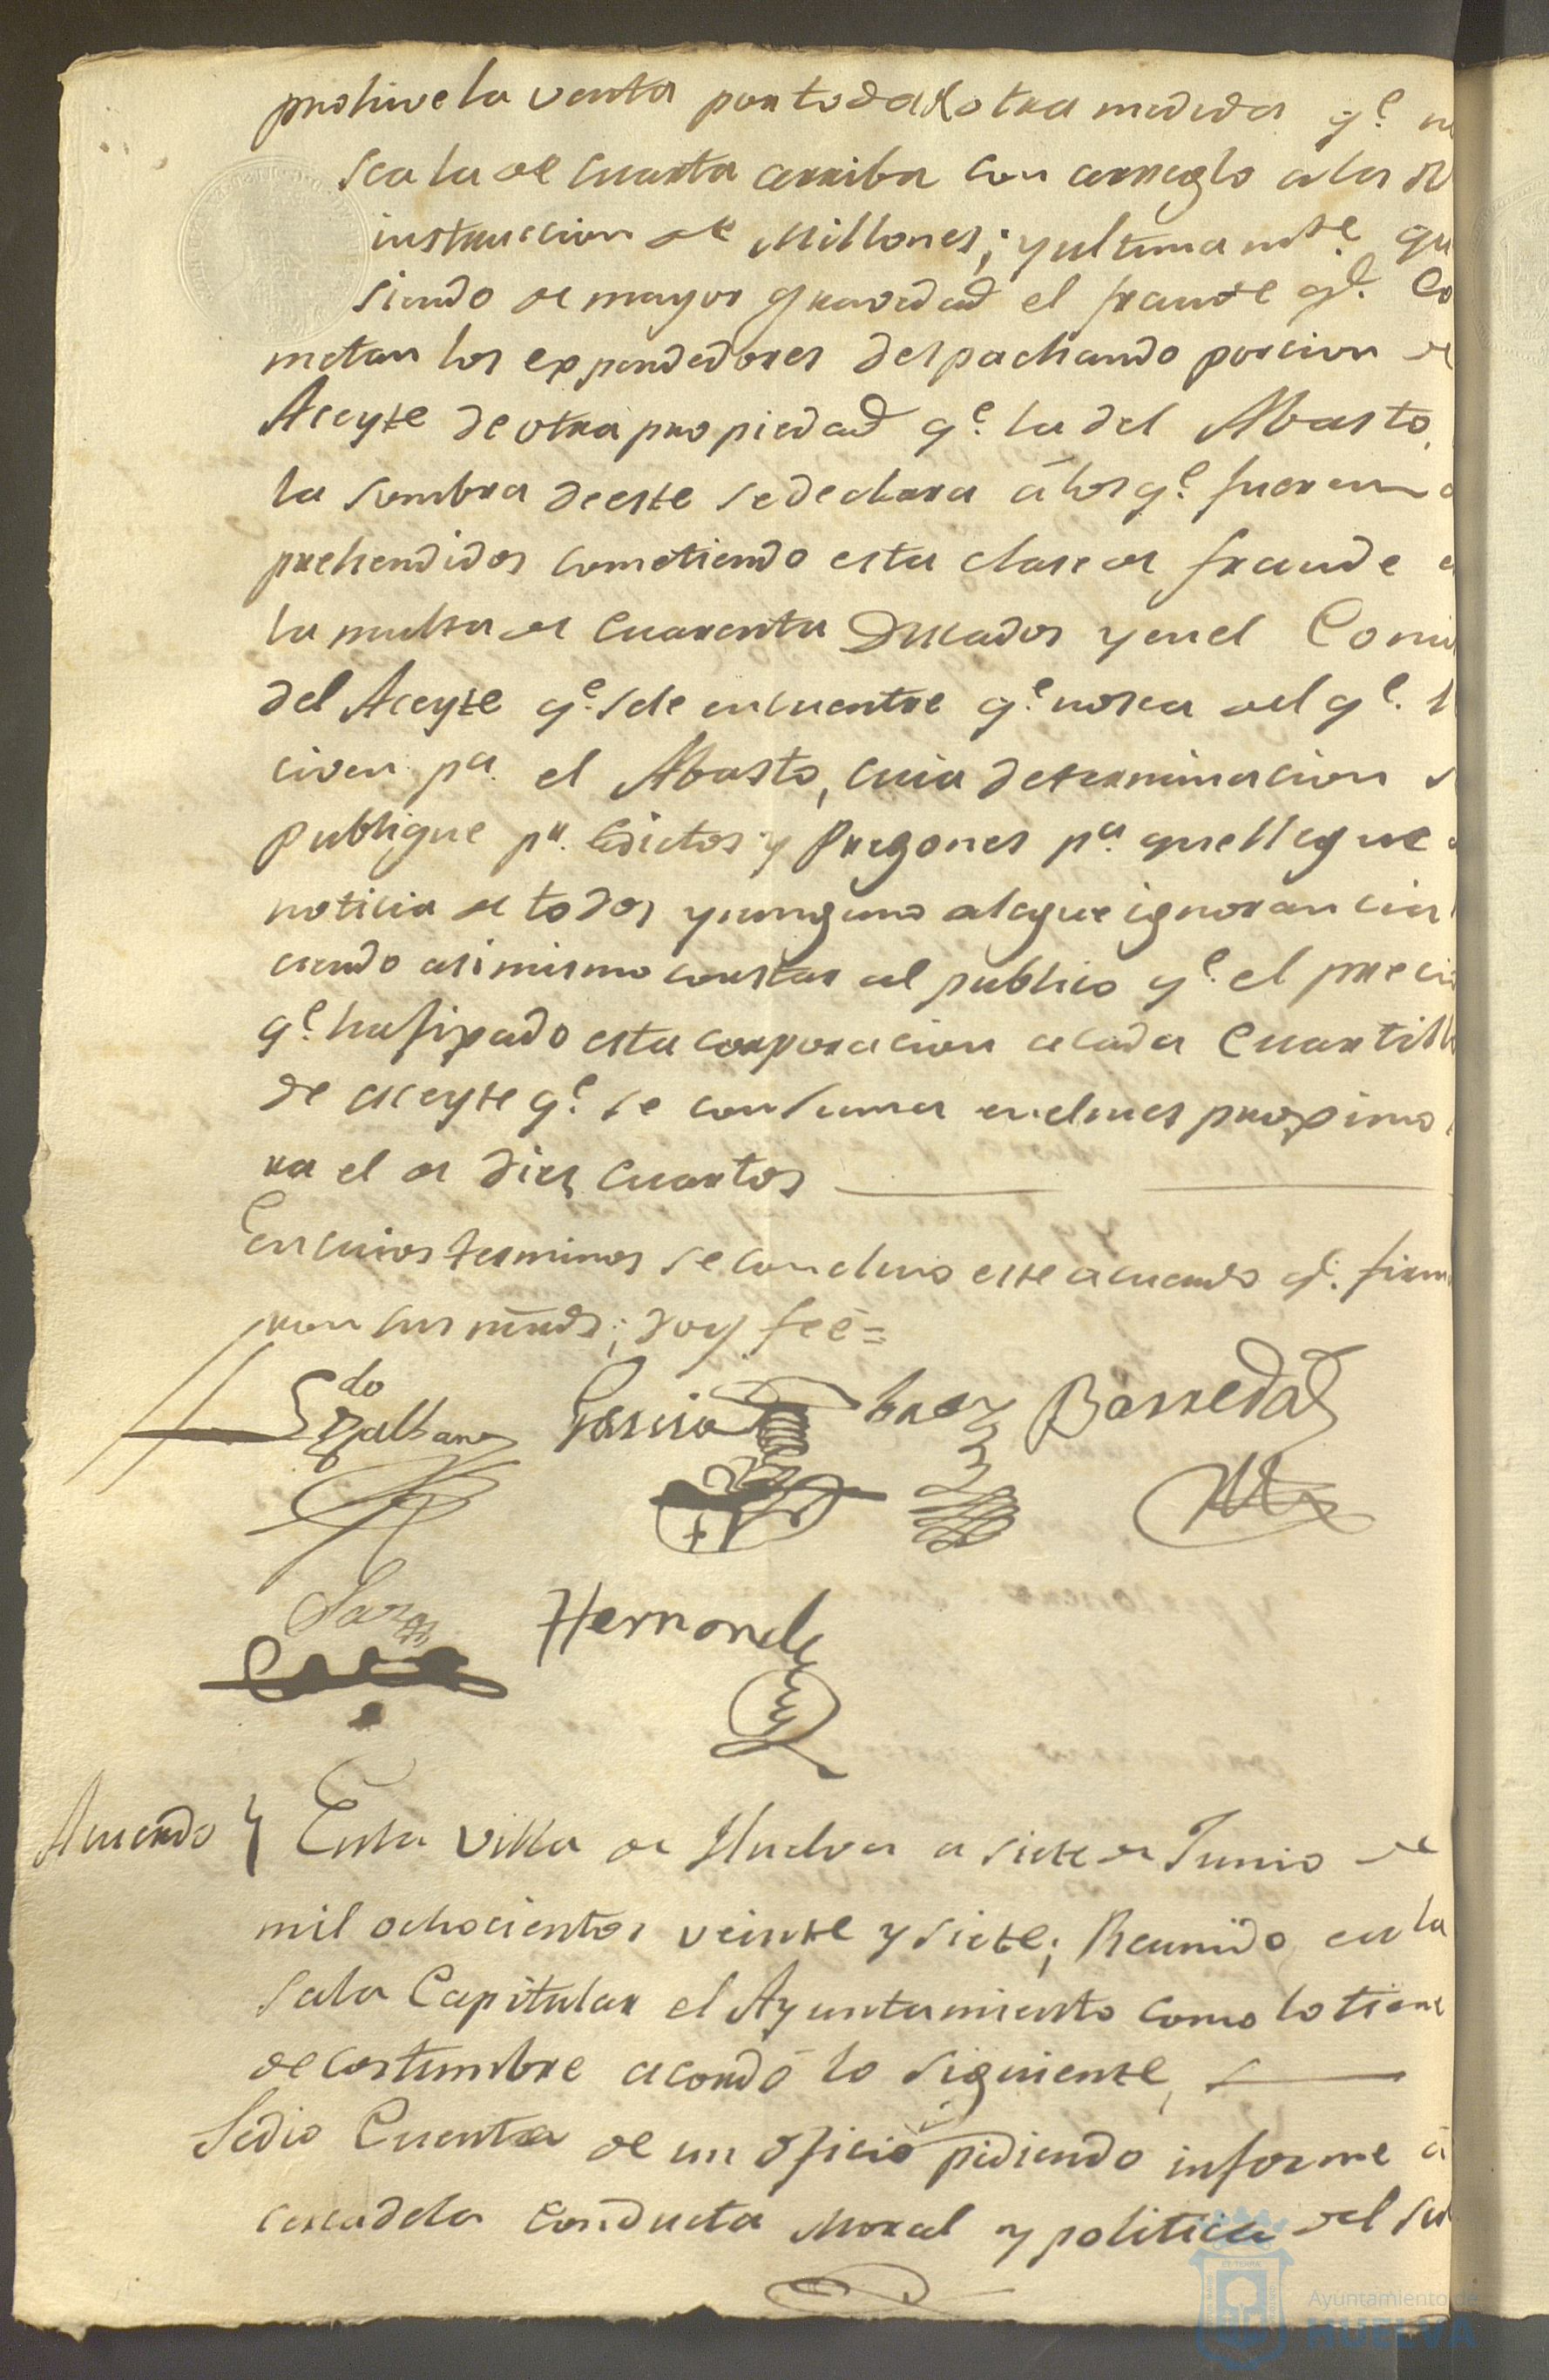 prohive la venta por toda otra medida q.e no
sea la de cuarta arriba con arreglo a la
instruccion de Millones; y ultimam.te que
siendo de mayor gravedad el fraude q.e co
metan los expendedores despachando porcion de
Aceyte de otra propiedad q.e la del Abasto,
la sombra de este se declara á los q.e fueren a
prehendidos cometiendo esta clase de fraude
la multa de cuarenta Ducados y en el Comi
del Aceyte q.e se le encuentre q.e no sea del q.e
civen p.a el Abasto, cuia determinacion s
publique p.r Edictos y Pregones p.a que llegue
noticia de todos y ninguno alegue ignorancia
ciendo asimismo constar al publico q.e el preci
q.e ha fixado esta corporacion a cada Cuartill
de aceyte q.e se consuma en el mes proximo
ra el de diez cuartos
En cuios terminos se concluio este acuerdo q.e firm
ron sus mrds; doy feé=
Garcia Barreda
Hernandz
Acuerdo } En la Villa de Huelva a siete de Junio de
mil ochocientos veinte y siete; Reunido en la
Sala Capitular el Ayuntamiento como lo tiene
de costumbre acordó lo siguiente,
Se dio Cuenta de un oficio pidiendo informe á
cerca de la conducta Moral y politica del su
Ayuntamiento de
HUELVA